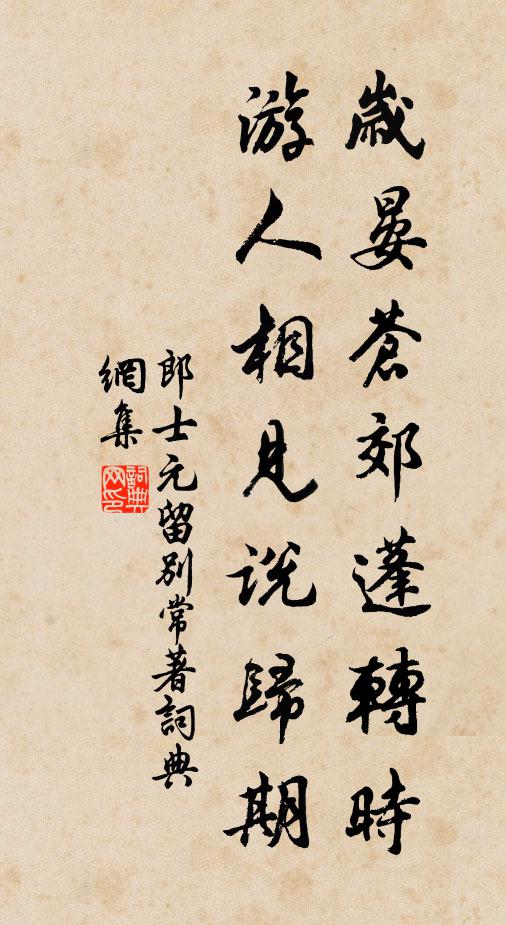 歲晏蒼郊蓬轉時
游人相見說歸期
郎士元留別常著詞典
網集
詞典
网印